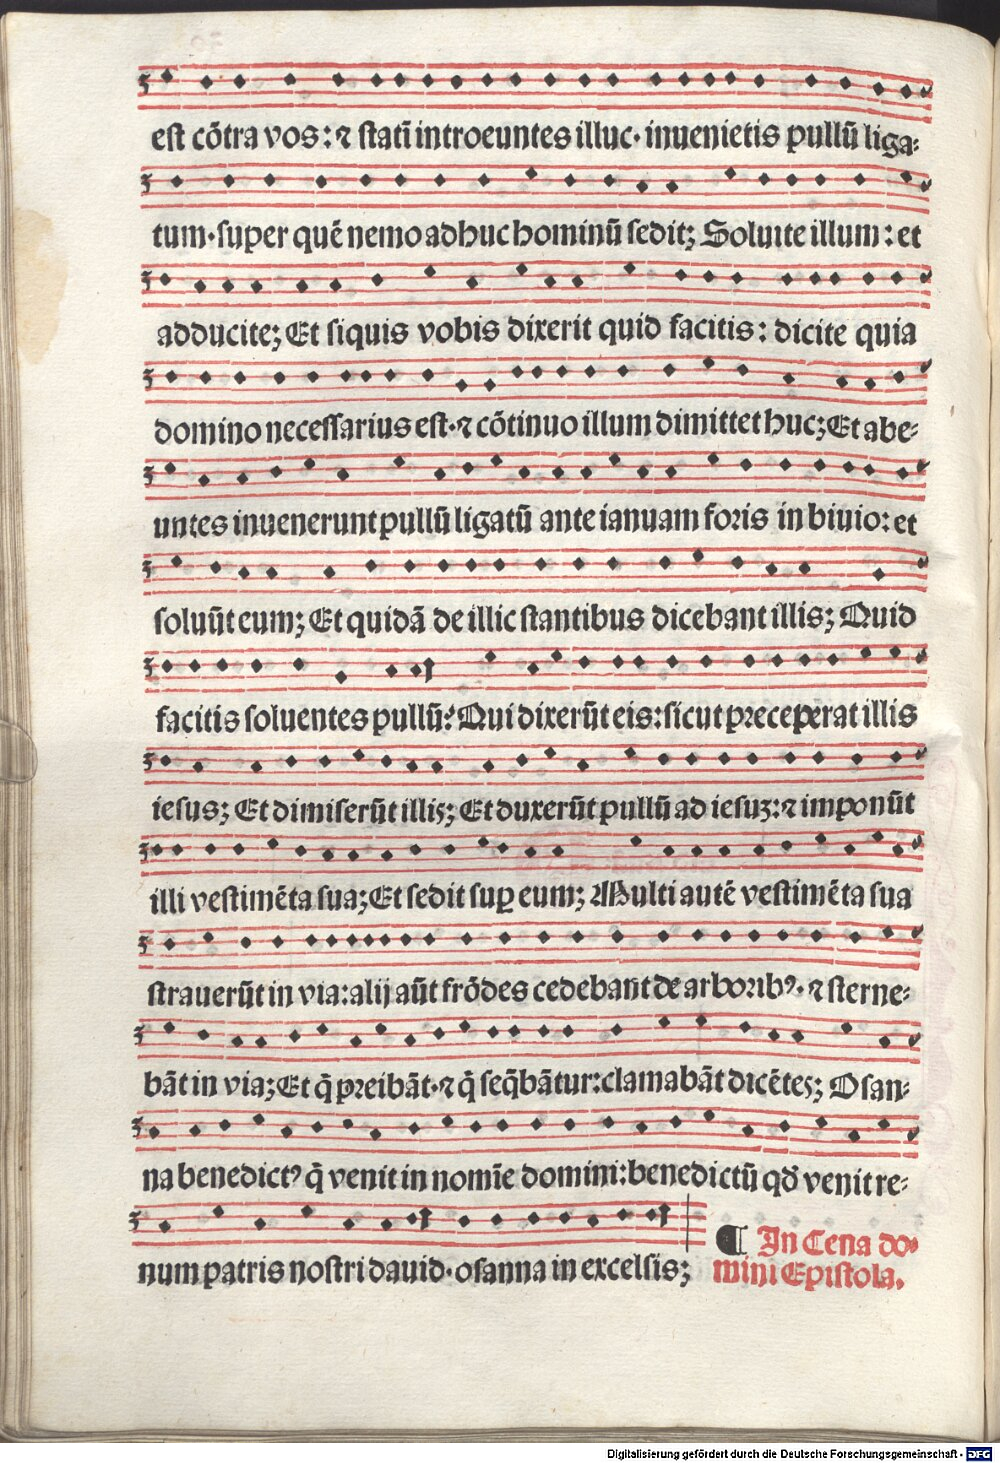 est cōtra vos: ⁊ statī introeuntes illuc· inuenietis pullū liga⸗
tum· super quē nemo adhuc hominū sedit; Soluite illum: et
adducite; Et siquis vobis dixerit quid facitis: dicite quia
domino necessarius est· ⁊ cōtinuo illum dimittet huc; Et abe⸗
untes inuenerunt pullū ligatū ante ianuam foris in biuio: et
soluūt eum; Et quidā de illic stantibus dicebant illis; Quid
facitis soluentes pullū? Qui dixerūt eis: sicut preceperat illis
iesus; Et dimiserūt illis; Et duxerūt pullū ad iesuꝫ: ⁊ imponūt
illi vestimēta sua; Et sedit suꝑ eum; Multi autē vestimēta sua
strauerūt in via: alij aūt frōdes cedebant de arboribꝰ· ⁊ sterne⸗
bāt in via; Et q̄ preibāt· ⁊ q̄ seq̄bātur: clamabāt dicētes; Osan⸗
na benedictꝰ q̄ venit in nomīe domini: benedictū qđ venit re⸗
num patris nostri dauid· osanna in excelsis;
¶ In Cena do⸗
mini Epistola.
Digitalisierung gefördert durch die Deutsche Forschungsgemeinschaft - DFG